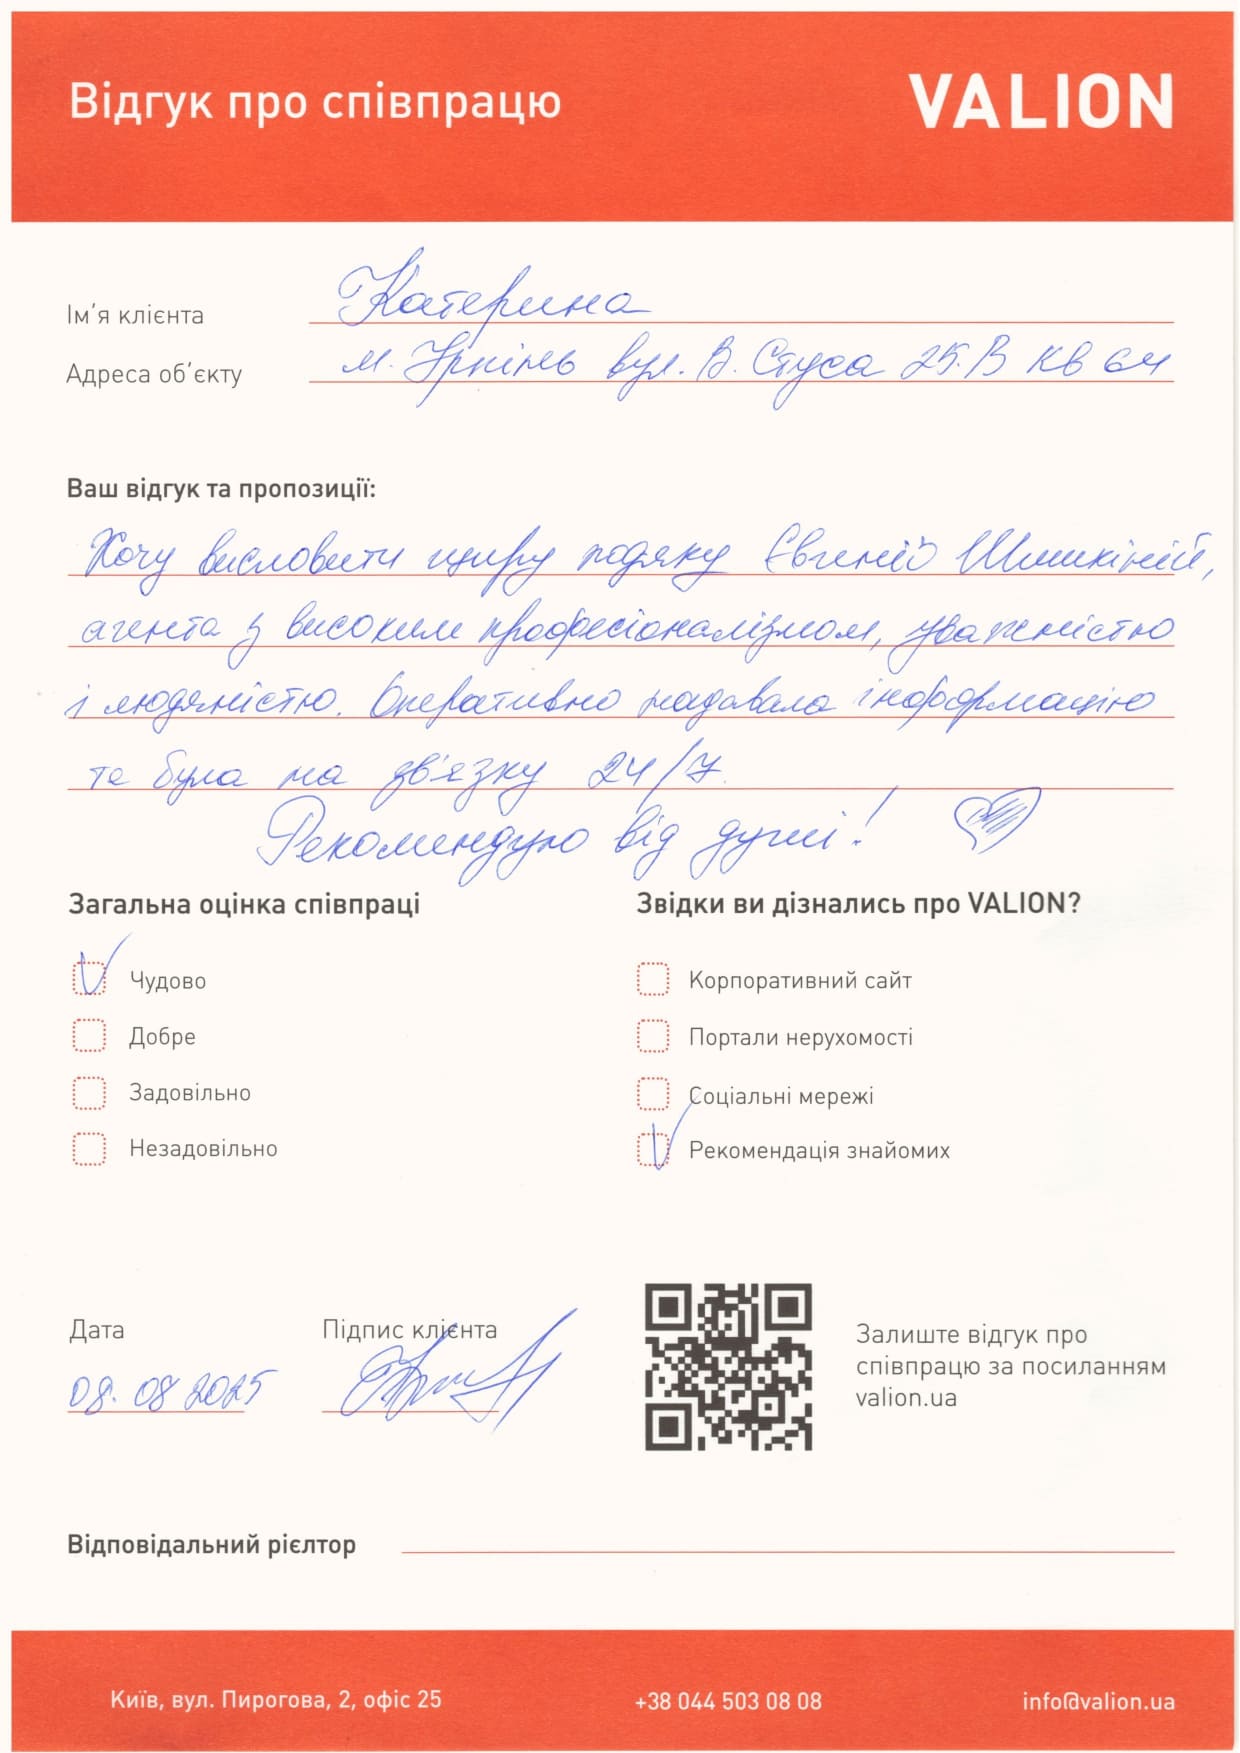 Відгук про співпрацю
VALION
Ім'я клієнта Катерина
Адреса об'єкту м. Ірпінь вул. В. Стуса 25.В кв 64
Ваш відгук та пропозиції:
Хочу висловити щиру подяку Євгенії Шишкіній,
агента з високим професіоналізмом, уважністю
і людяністю. Оперативно надавала інформацію
та була на зв'язку 24/7.
Рекомендую від душі!
Загальна оцінка співпраці
Чудово
Добре
Задовільно
Незадовільно
Звідки ви дізнались про VALION?
Корпоративний сайт
Портали нерухомості
Соціальні мережі
Рекомендація знайомих
Дата
08.08 2025
Підпис клієнта
Залиште відгук про
співпрацю за посиланням
valion.ua
Відповідальний рієлтор
Київ, вул. Пирогова, 2, офіс 25
+38 044 503 08 08
info@valion.ua